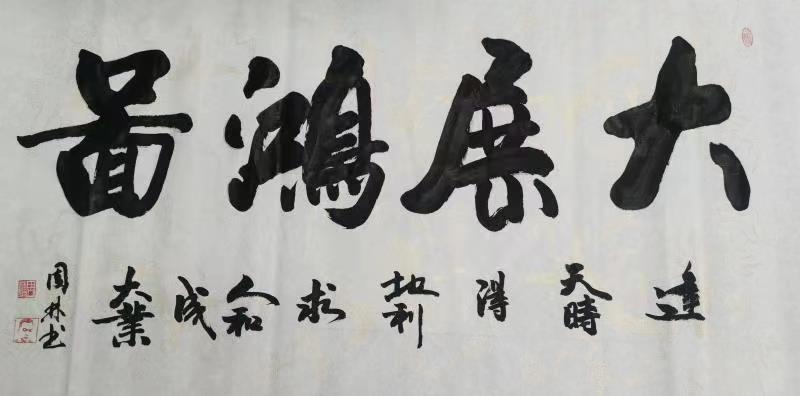 大展鴻啚
逢天時得地利求人和成大業
周林书